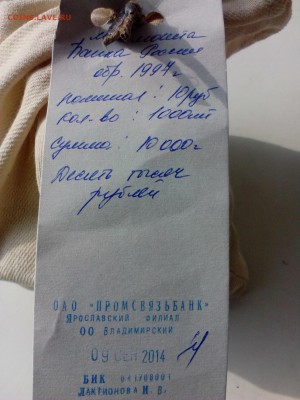 COINS.LAVE.RU
Банка России
обр. 1997 г
номинал: 10 руб
кол-во: 1000 шт
сумма: 10 000 =
Десять тысяч
рублей
ОАО "ПРОМСВЯЗЬБАНК"
ЯРОСЛАВСКИЙ ФИЛИАЛ
ОО ВЛАДИМИРСКИЙ
09 СЕН 2014
БИК
ЛАКТИОНОВА И. В.